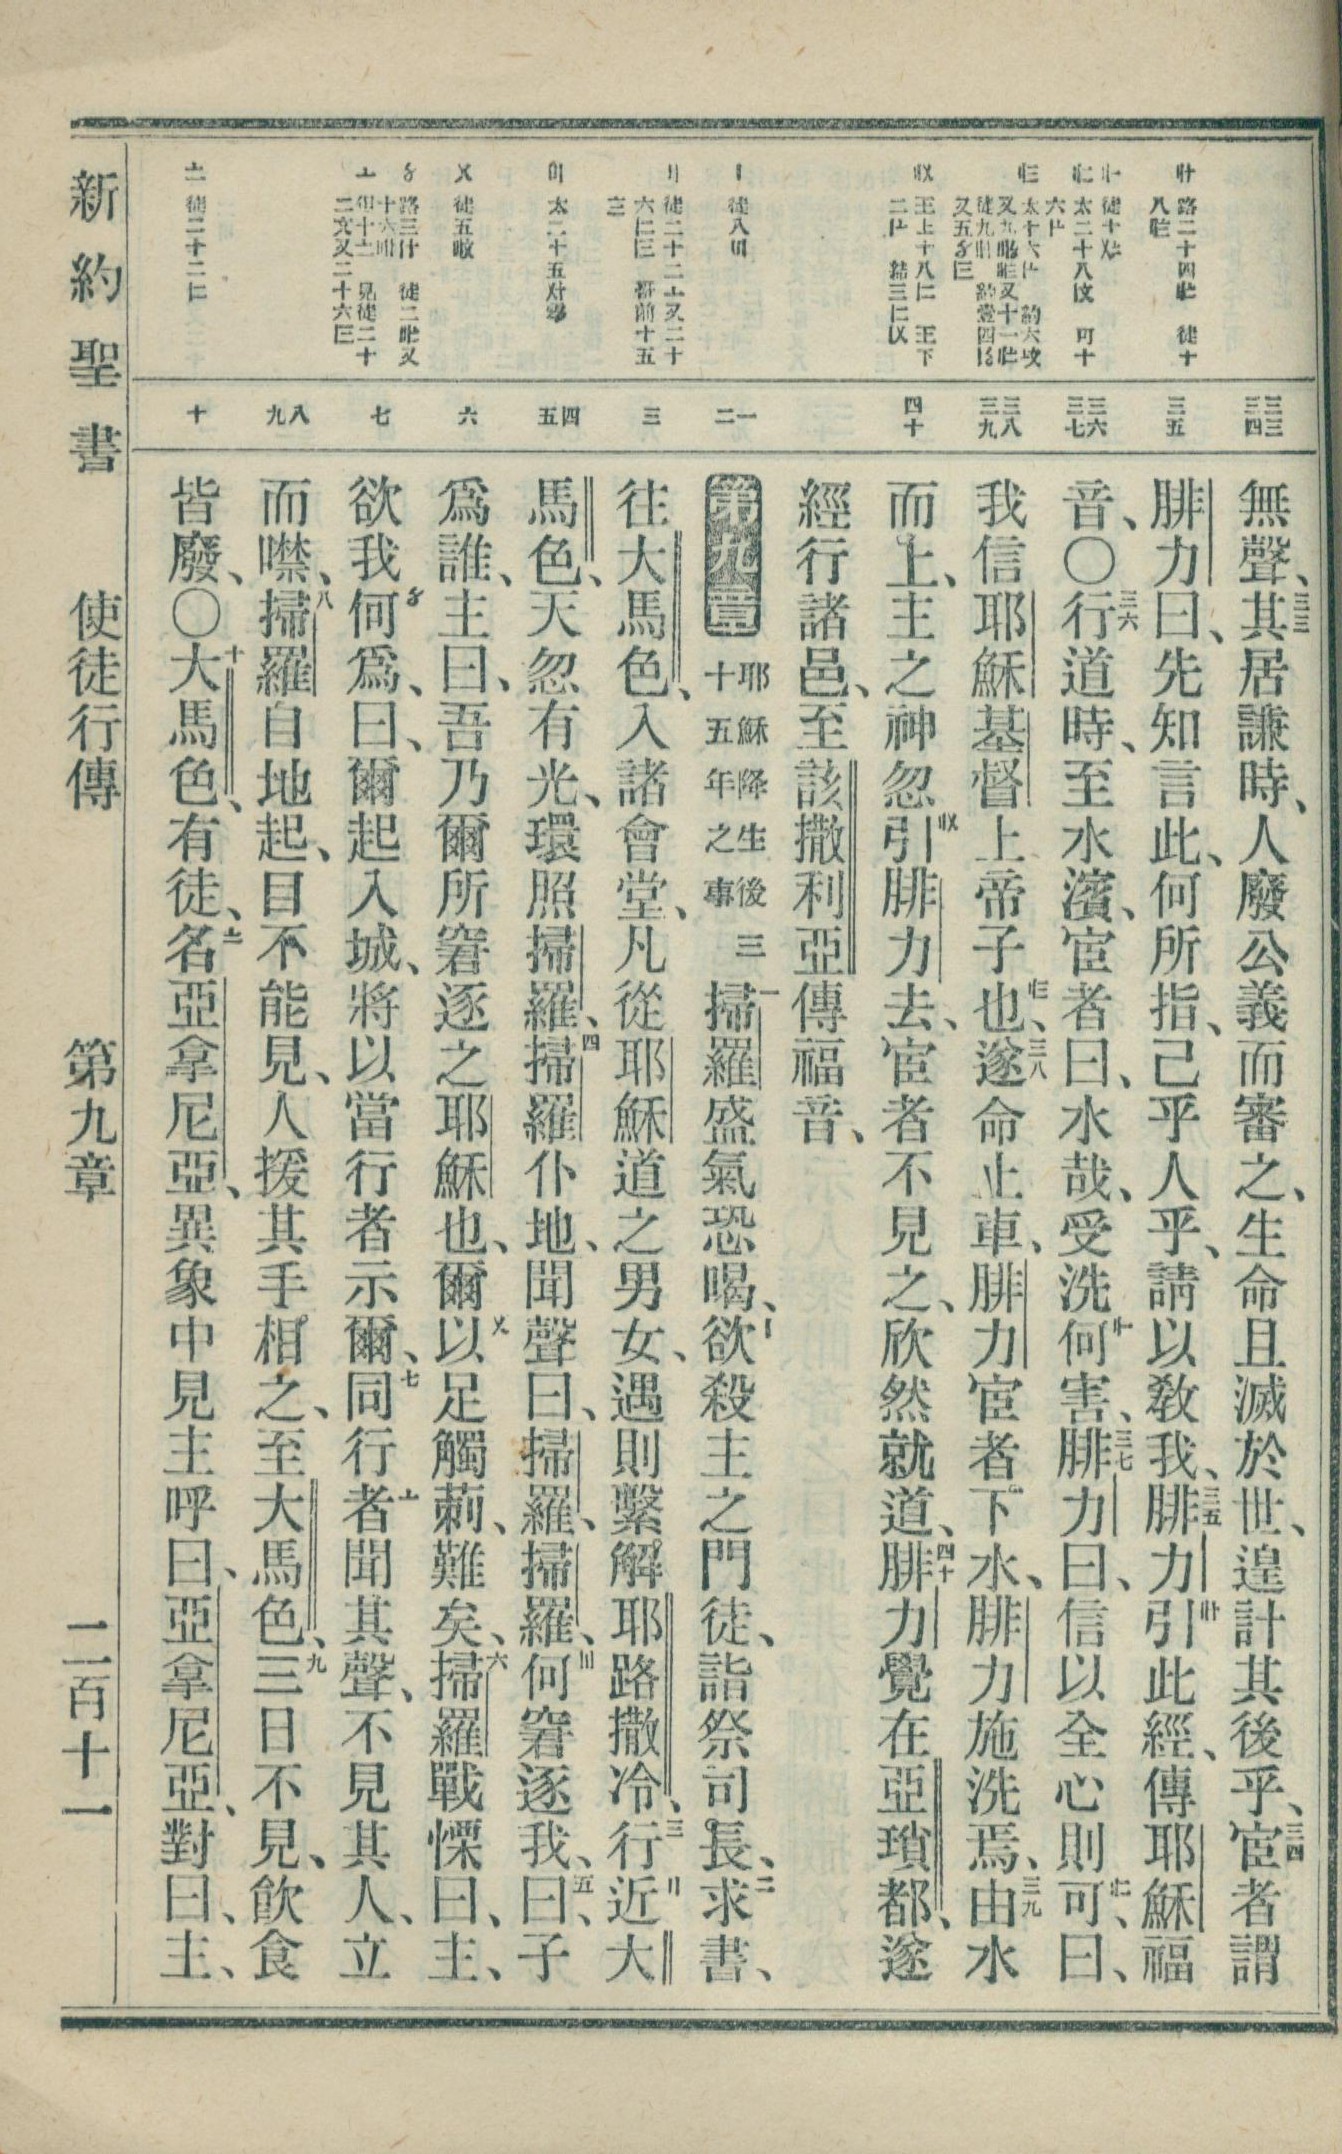 三三 三四
無聲、其居謙時、人廢公義而審之、生命且滅於世、遑計其後乎、三四宦者謂
三五
腓力曰、先知言此、何所指、己乎人乎、請以教我、三五腓力引此經、傳耶穌福
三六 三七
音、〇三六行道時、至水濱、宦者曰、水哉、受洗何害、三七腓力曰、信以全心則可、曰、
三八 三九
我信耶穌基督上帝子也、三八遂命止車、腓力宦者下水、腓力施洗焉、三九由水
四十
而上、主之神忽引腓力去、宦者不見之、欣然就道、四十腓力覺在亞瑣都、遂
經行諸邑、至該撒利亞傳福音、
一 二
第九章 耶穌降生後三十五年之事 一掃羅盛氣恐喝、欲殺主之門徒、詣祭司長、二求書、
三
往大馬色、入諸會堂、凡從耶穌道之男女、遇則繫解耶路撒冷、三行近大
四 五
馬色、天忽有光、環照掃羅、四掃羅仆地、聞聲曰、掃羅、掃羅、何窘逐我、五曰、子
六
爲誰、主曰、吾乃爾所窘逐之耶穌也、爾以足觸莿、難矣、六掃羅戰慄曰、主、
七
欲我何爲、曰、爾起入城、將以當行者示爾、七同行者聞其聲、不見其人、立
八 九
而噤、八掃羅自地起、目不能見、人援其手相之、至大馬色、九三日不見、飲食
十
皆廢、〇十大馬色、有徒、名亞拿尼亞、異象中見主呼曰、亞拿尼亞、對曰、主、
新約聖書 使徒行傳 第九章 二百十一